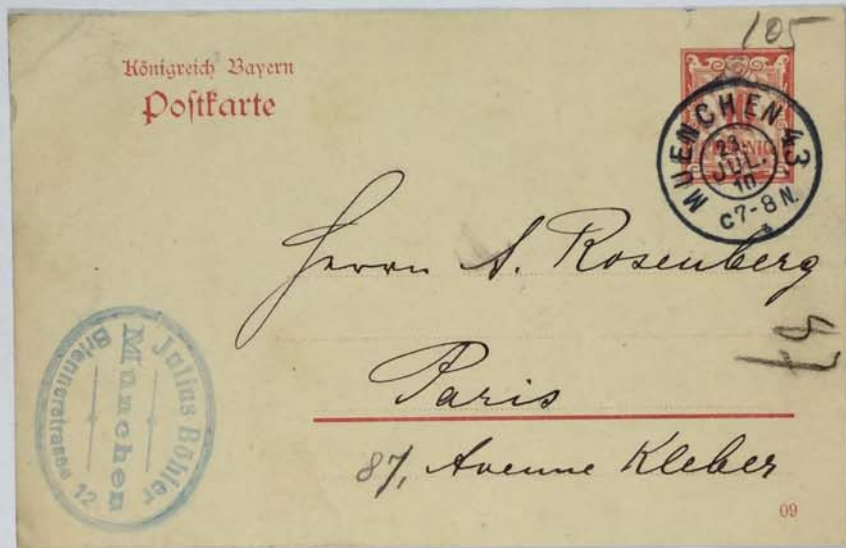 105
Königreich Bayern
Postkarte
MUENCHEN 43
23.
JUL.
10
C7-8 N.
Herrn A. Rosenberg
Paris
87, Avenue Kleber
Julius Böhler
München
Briennerstrasse 12
09